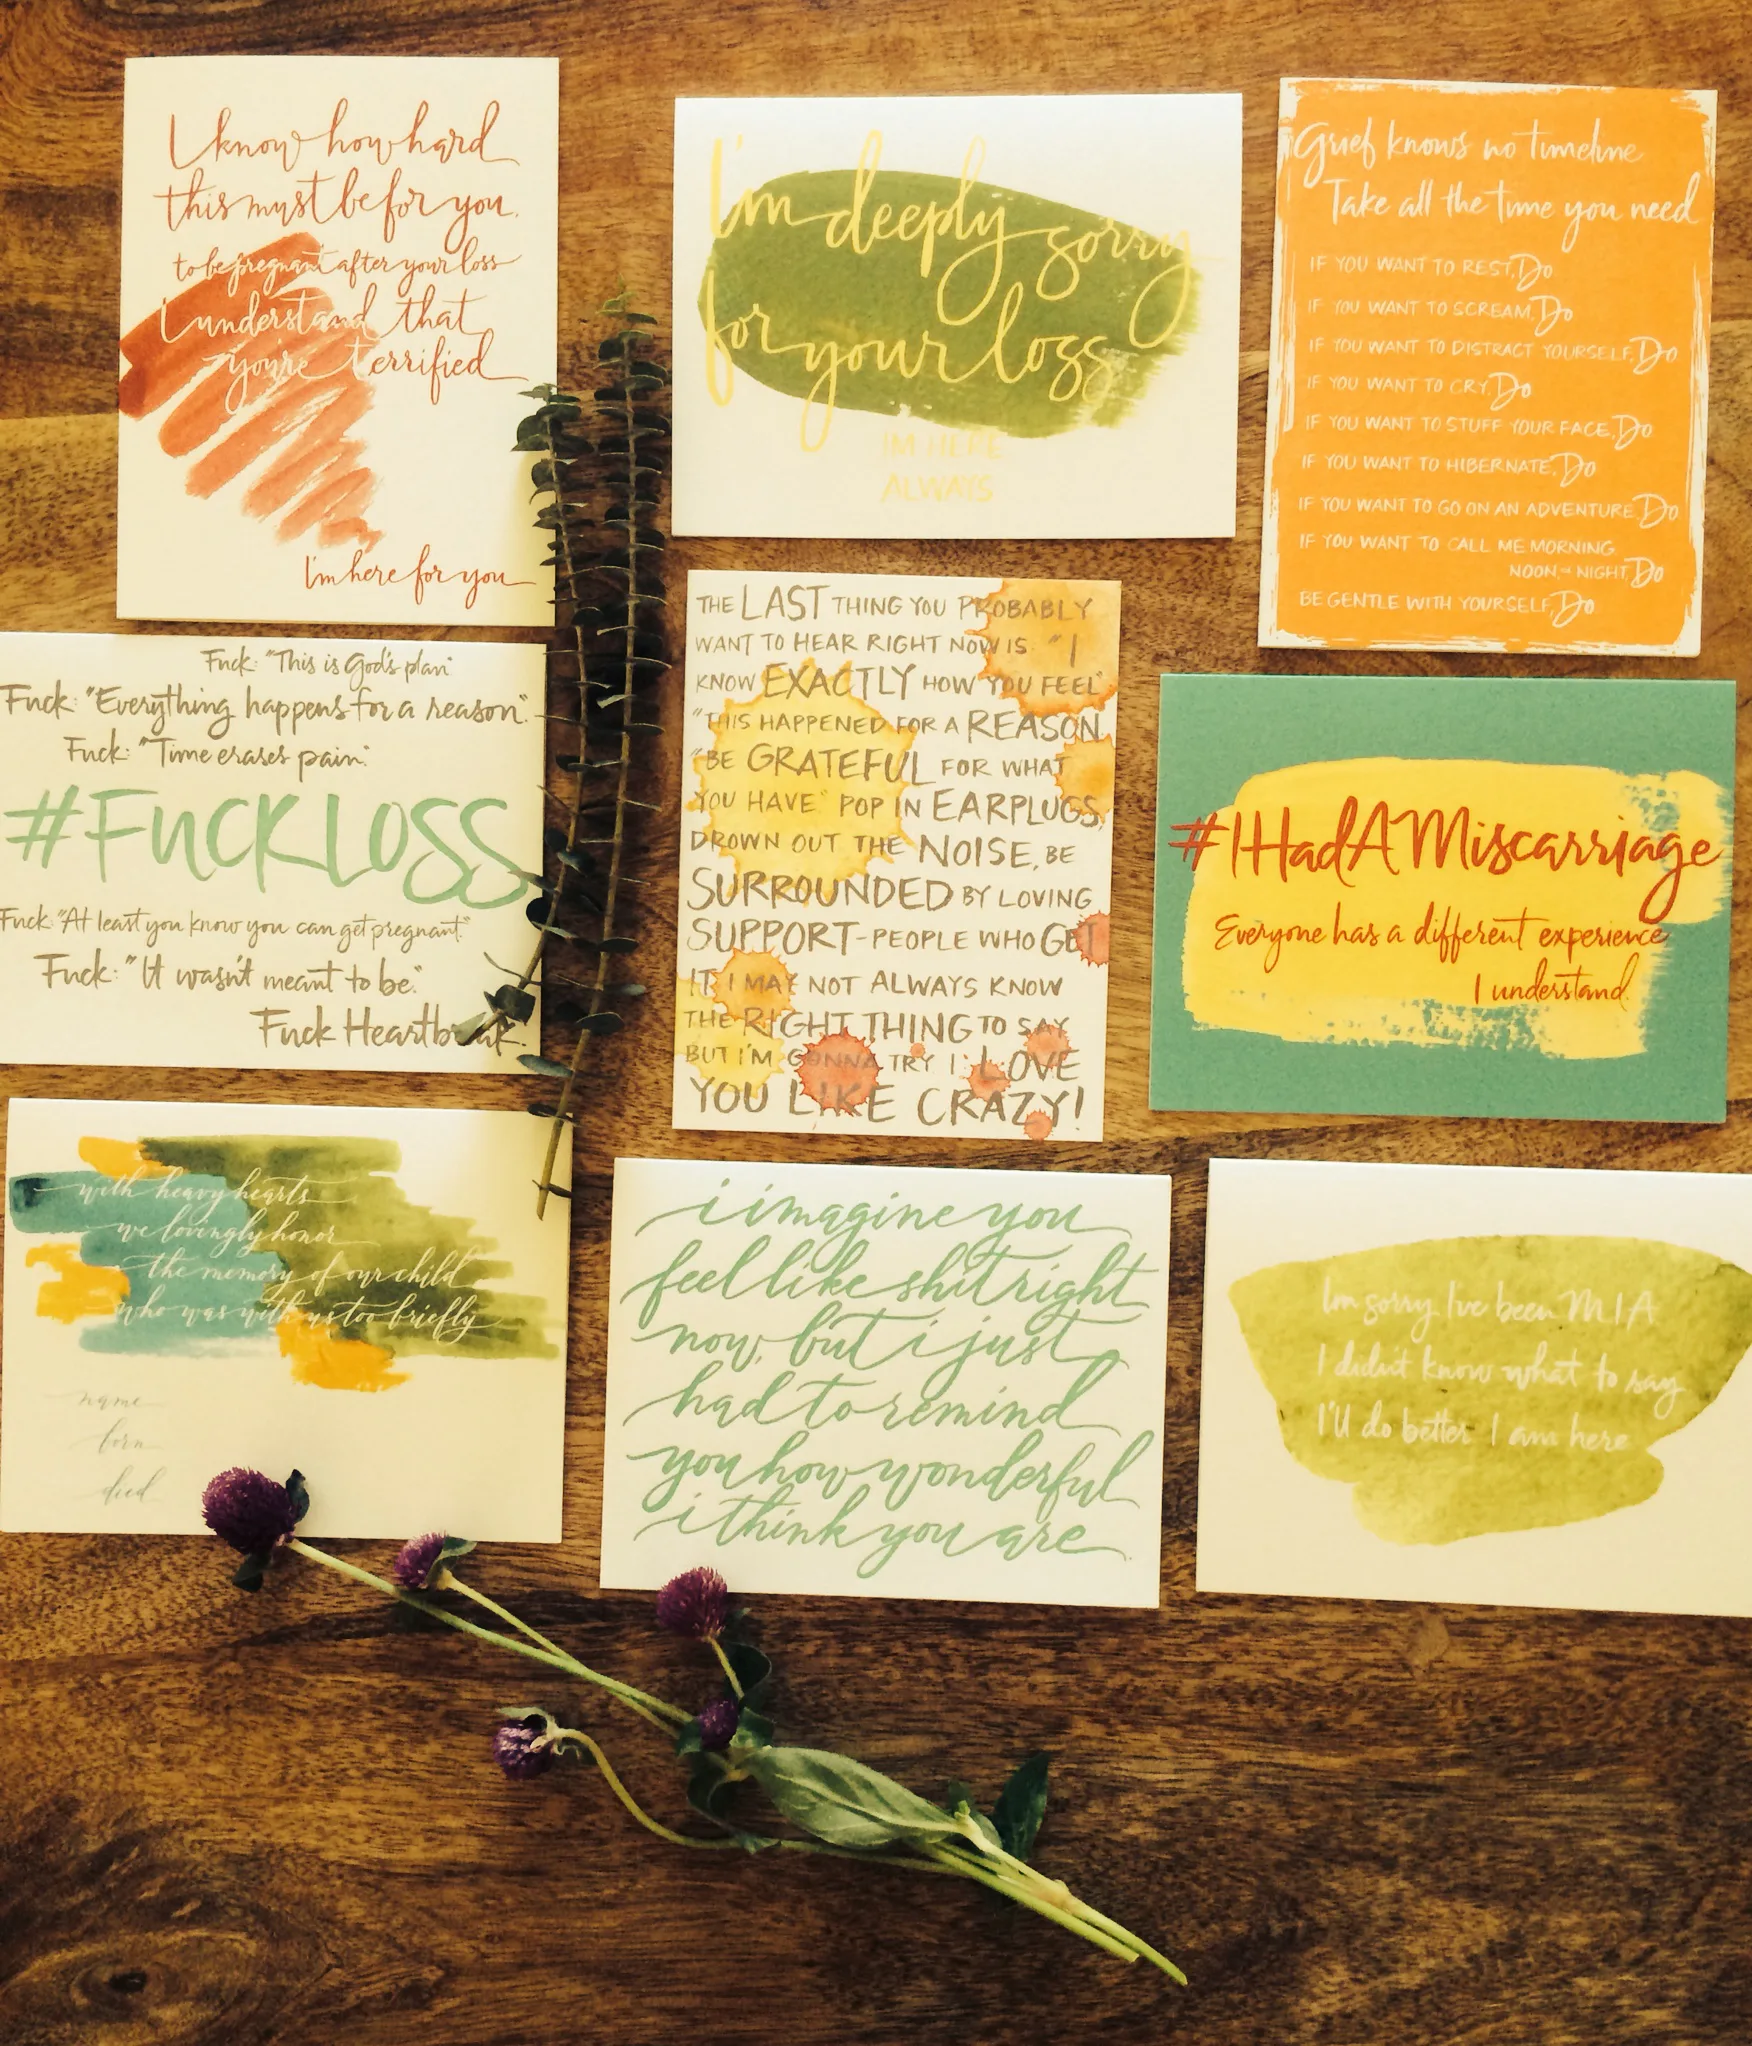 I know how hard
this must be for you.
to be pregnant after your loss
I understand that
you're terrified
I'm here for you
I'm deeply sorry
for your loss
I'M HERE
ALWAYS
Grief knows no timeline
Take all the time you need
IF YOU WANT TO REST, Do
IF YOU WANT TO SCREAM, Do
IF YOU WANT TO DISTRACT YOURSELF, Do
IF YOU WANT TO CRY, Do
IF YOU WANT TO STUFF YOUR FACE, Do
IF YOU WANT TO HIBERNATE, Do
IF YOU WANT TO GO ON AN ADVENTURE, Do
IF YOU WANT TO CALL ME MORNING
NOON, or NIGHT, Do
BE GENTLE WITH YOURSELF, Do
Fuck: "This is God's plan"
Fuck: "Everything happens for a reason".
Fuck: "Time erases pain."
#FUCKLOSS
Fuck: "At least you know you can get pregnant."
Fuck: "It wasn't meant to be."
Fuck Heartbreak.
THE LAST THING YOU PROBABLY
WANT TO HEAR RIGHT NOW IS "I
KNOW EXACTLY HOW YOU FEEL"
"THIS HAPPENED FOR A REASON."
"BE GRATEFUL FOR WHAT
YOU HAVE" POP IN EARPLUGS,
DROWN OUT THE NOISE, BE
SURROUNDED BY LOVING
SUPPORT-PEOPLE WHO GET
IT. I MAY NOT ALWAYS KNOW
THE RIGHT THING TO SAY
BUT I'M GONNA TRY. I LOVE
YOU LIKE CRAZY!
#IHadAMiscarriage
Everyone has a different experience
I understand.
with heavy hearts
we lovingly honor
the memory of our child
who was with us too briefly
name
born
died
i imagine you
feel like shit right
now, but i just
had to remind
you how wonderful
i think you are.
I'm sorry I've been MIA
I didn't know what to say
I'll do better I am here